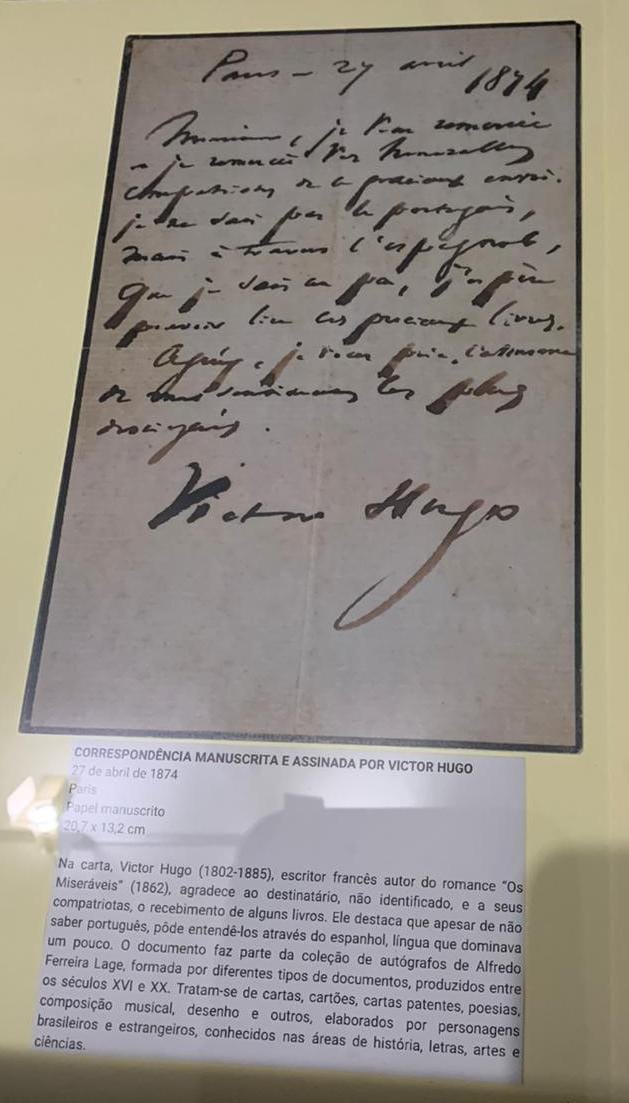 Paris – 27 avril 1874
Monsieur, je vous remercie
et je remercie vos honorables
compatriotes de le précieux envoi.
je ne sais pas le portugais,
mais à travers l'espagnol,
que je sais un peu, j'espère
pouvoir lire ces précieux livres.
je vous prie, l'assurance
de mes sentiments les plus
distingués.
Victor Hugo
CORRESPONDÊNCIA MANUSCRITA E ASSINADA POR VICTOR HUGO
27 de abril de 1874
Paris
Papel manuscrito
20,7 x 13,2 cm
Na carta, Victor Hugo (1802-1885), escritor francês autor do romance “Os
Miseráveis” (1862), agradece ao destinatário, não identificado, e a seus
compatriotas, o recebimento de alguns livros. Ele destaca que apesar de não
saber português, pôde entendê-los através do espanhol, língua que dominava
um pouco. O documento faz parte da coleção de autógrafos de Alfredo
Ferreira Lage, formada por diferentes tipos de documentos, produzidos entre
os séculos XVI e XX. Tratam-se de cartas, cartões, cartas patentes, poesias,
composição musical, desenho e outros, elaborados por personagens
brasileiros e estrangeiros, conhecidos nas áreas de história, letras, artes e
ciências.